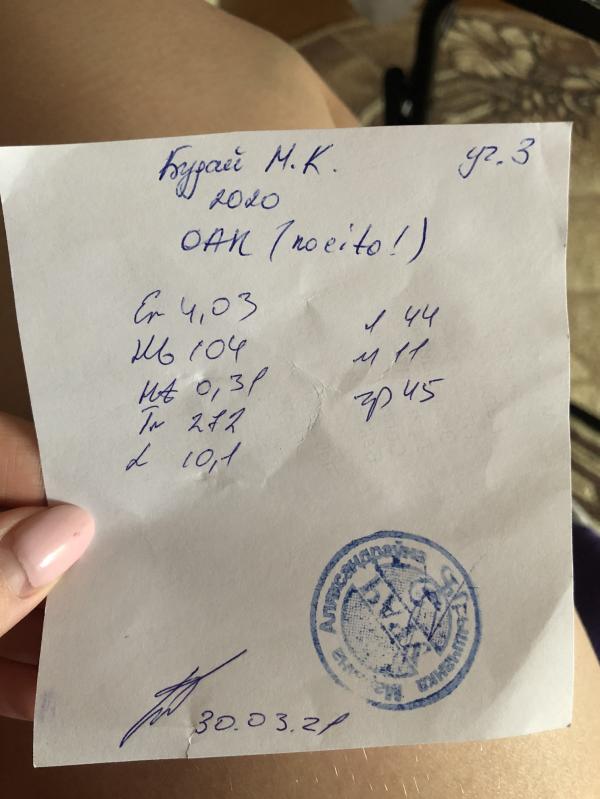 Будай М.К.
уч. 3
2020
ОАК (nocito!)
Er 4,03
Hb 104
Ht 0,31
Tr 272
L 10,1
л 44
м 11
гр 45
Александровна
30.03.21